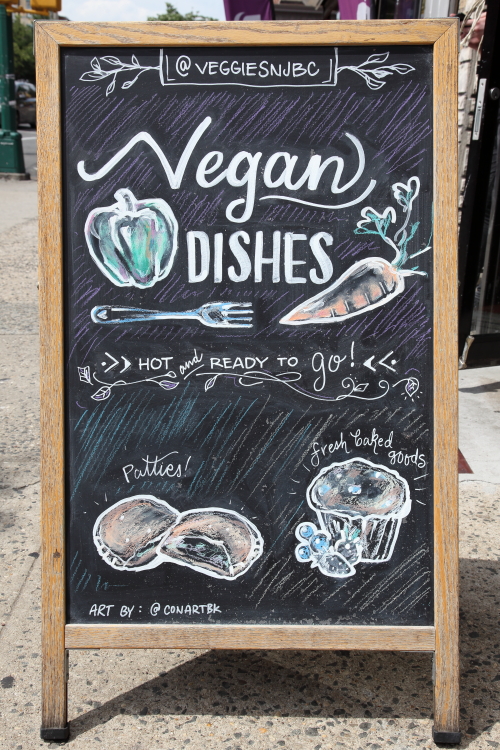 @VEGGIESNJBC
Vegan
DISHES
HOT and READY TO go!
Patties!
fresh baked
goods
ART BY: @CONARTBK